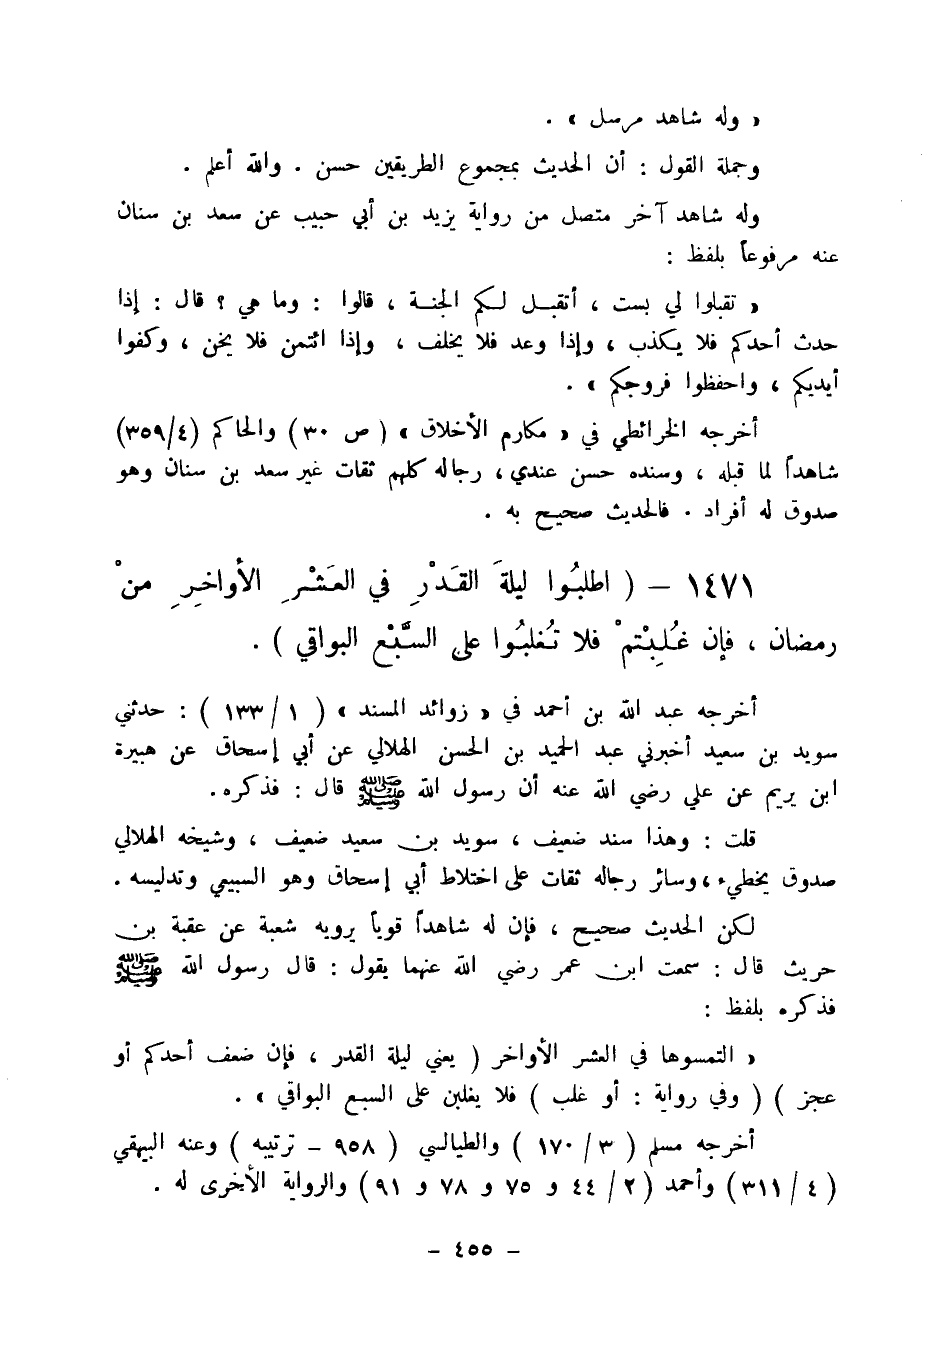 « وله شاهد مرسل » .
وجملة القول : أن الحديث بمجموع الطريقين حسن . والله أعلم .
وله شاهد آخر متصل من رواية يزيد بن أبي حبيب عن سعد بن سنان
عنه مرفوعاً بلفظ :
« تقبلوا لي بست ، أتقبل لكم الجنة ، قالوا : وما هي ؟ قال : إذا
حدث أحدكم فلا يكذب ، وإذا وعد فلا يخلف ، وإذا ائتمن فلا يخن ، وكفوا
أيديكم ، واحفظوا فروجكم » .
أخرجه الخرائطي في « مكارم الأخلاق » ( ص ٣٠ ) والحاكم (٤/٣٥٩)
شاهداً لما قبله ، وسنده حسن عندي ، رجاله كلهم ثقات غير سعد بن سنان وهو
صدوق له أفراد . فالحديث صحيح به .
١٤٧١ – ( اطلبُوا ليلةَ القَدْرِ في العَشْرِ الأواخِرِ منْ
رمضان ، فإن غُلِبْتمْ فلا تُغلبُوا على السَّبْعِ البواقي ) .
أخرجه عبد الله بن أحمد في « زوائد المسند » ( ١ / ١٣٣ ) : حدثني
سويد بن سعيد أخبرني عبد الحميد بن الحسن الهلالي عن أبي إسحاق عن هبيرة
ابن يريم عن علي رضي الله عنه أن رسول الله ﷺ قال : فذكره .
قلت : وهذا سند ضعيف ، سويد بن سعيد ضعيف ، وشيخه الهلالي
صدوق يخطيء ، وسائر رجاله ثقات على اختلاط أبي إسحاق وهو السبيعي وتدليسه .
لكن الحديث صحيح ، فإن له شاهداً قوياً يرويه شعبة عن عقبة بن
حريث قال : سمعت ابن عمر رضي الله عنهما يقول : قال رسول الله ﷺ
فذكره بلفظ :
« التمسوها في العشر الأواخر ( يعني ليلة القدر ، فإن ضعف أحدكم أو
عجز ) ( وفي رواية : أو غلب ) فلا يغلبن على السبع البواقي » .
أخرجه مسلم ( ٣ / ١٧٠ ) والطيالسي ( ٩٥٨ – ترتيبه ) وعنه البيهقي
( ٤ / ٣١١) وأحمد (٢ / ٤٤ و ٧٥ و ٧٨ و ٩١) والرواية الأخرى له .
– ٤٥٥ –